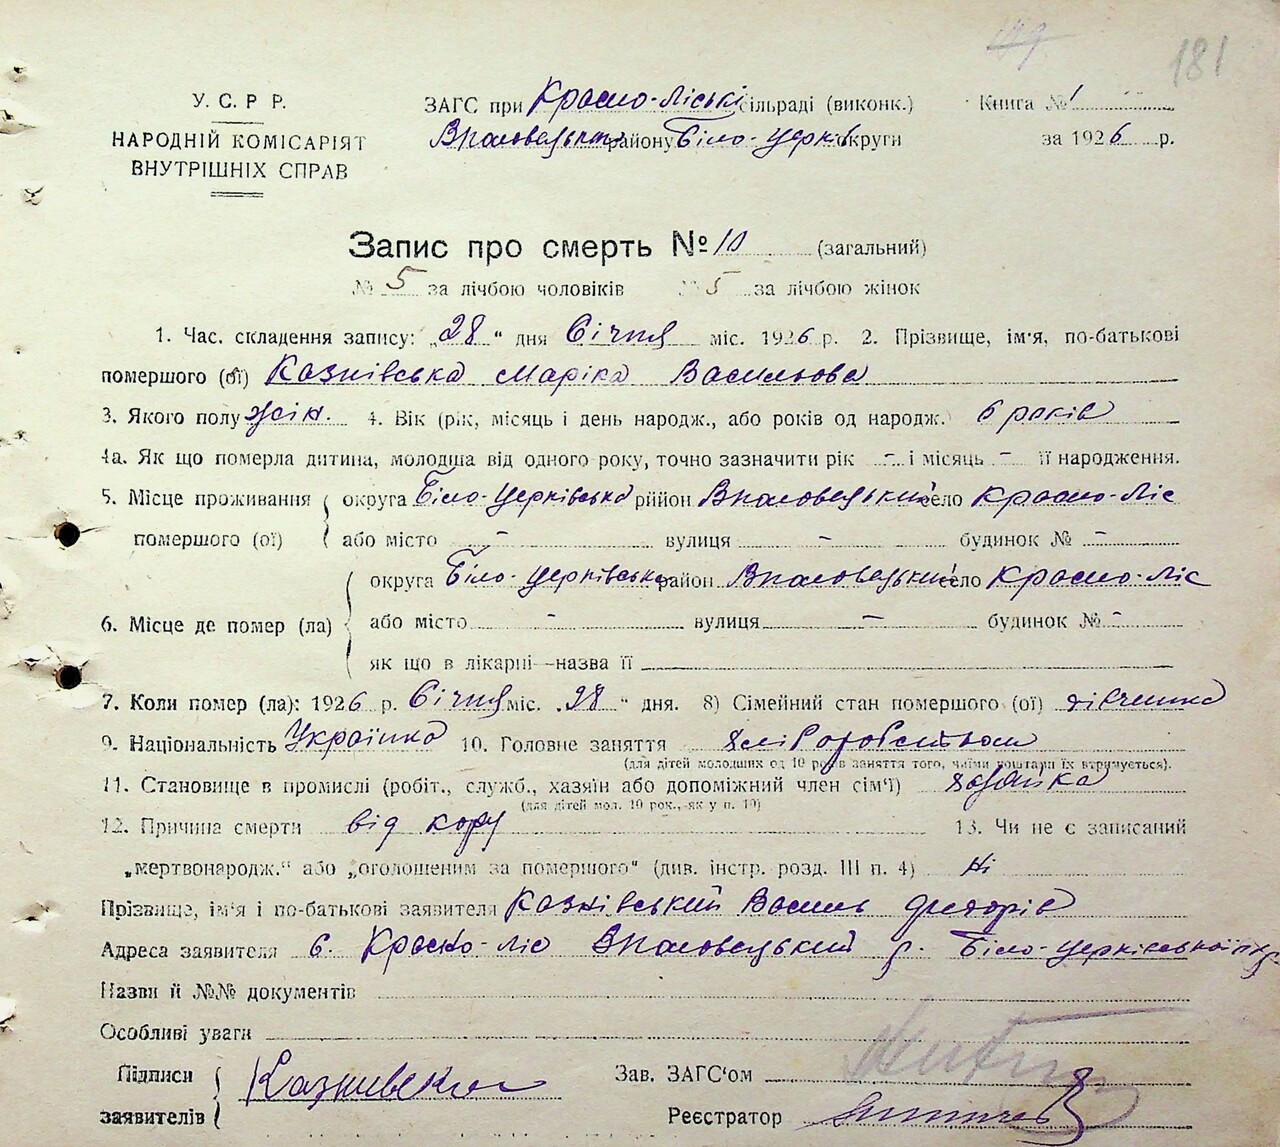 181
У. С. Р. Р.
НАРОДНІЙ КОМІСАРІЯТ
ВНУТРІШНІХ СПРАВ
ЗАГС при Красно-Ліській сільраді (виконк.)
району Біло-Церків округи
Книга № 1
за 1926 р.
Запис про смерть № 10 (загальний)
№ 5 за лічбою чоловіків № 5 за лічбою жінок
1. Час. складення запису: „28“ дня Січня міс. 1926 р. 2. Прізвище, ім'я, по-батькові
помершого (ої) Казнівська Маріка Васильова
3. Якого полу жін. 4. Вік (рік, місяць і день народж., або років од народж.) 6 років
4а. Як що померла дитина, молодша від одного року, точно зазначити рік - і місяць - її народження.
5. Місце проживання округа Біло-Церківська район село Красно-Ліс
помершого (ої) або місто - вулиця - будинок № -
округа Біло-Церківська район село Красно-Ліс
6. Місце де помер (ла) або місто - вулиця - будинок № -
як що в лікарні—назва її
7. Коли помер (ла): 1926 р. Січня міс. „28“ дня. 8) Сімейний стан помершого (ої) дівчинка
9. Національність Українка 10. Головне заняття хліборобством
(для дітей молодших од 10 років заняття того, чиїми коштами їх втримується).
11. Становище в промислі (робіт., служб., хазяїн або допоміжний член сім'ї) хазяйка
(для дітей мол. 10 рок., як у п. 10)
12. Причина смерти від кору 13. Чи не є записаний
„мертвонародж.“ або „оголошеним за помершого“ (див. інстр. розд. III п. 4) Ні
Прізвище, ім'я і по-батькові заявителя Казнівський Василь Федорів
Адреса заявителя с. Красно-Ліс р. Біло-Церківської
Назви й №№ документів
Особливі уваги
Підписи
заявителів
Зав. ЗАГС'ом
Реєстратор